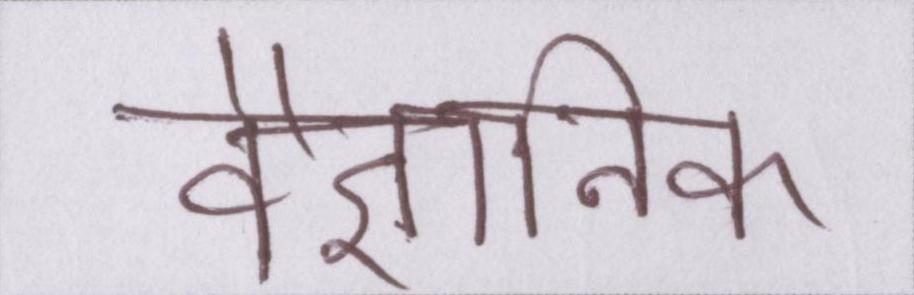 वैज्ञानिक